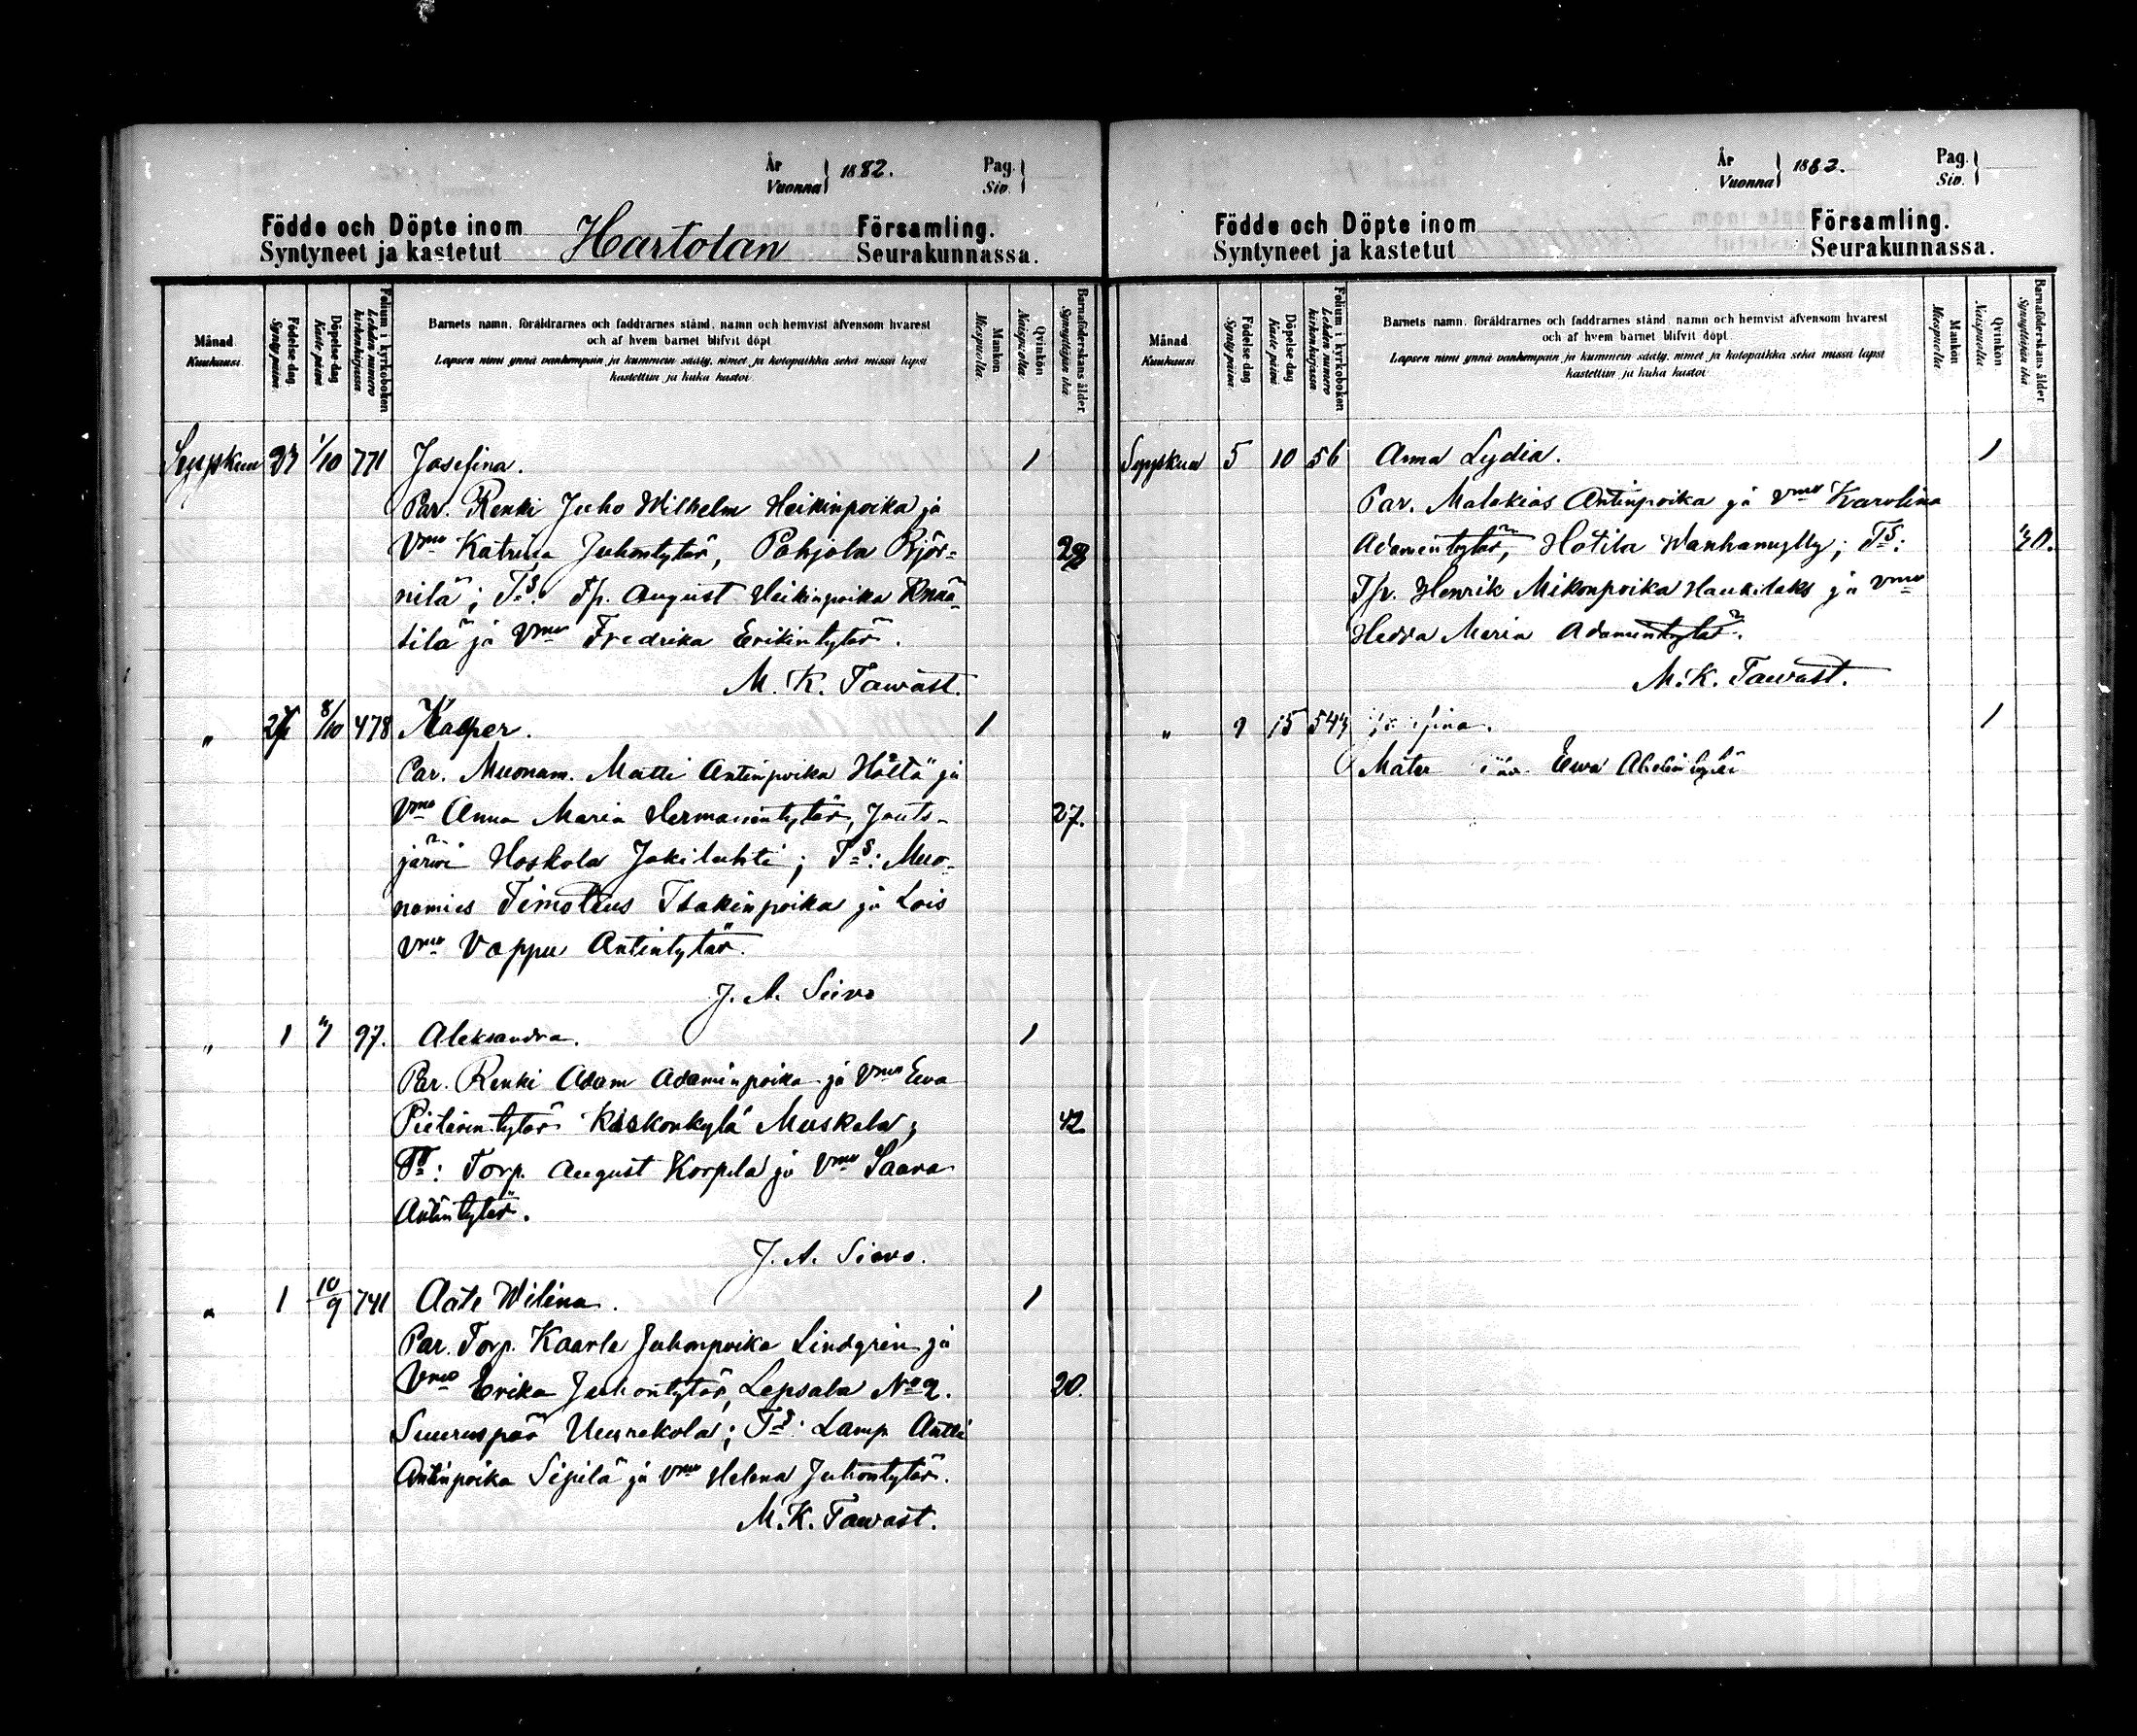 År
Vuonna 1882. Pag.
Siv.
Födde och Döpte inom Församling.
Syntyneet ja kastetut Hartolan Seurakunnassa.
Månad Kuukausi.
Födelse-dag Synty-päivä.
Döpelse-dag Kaste-päivä
Folium i kyrkoboken Lehden numero kirkonkirjassa.
Barnets namn, föräldrarnes och faddrarnes stånd, namn och hemvist äfvensom hvarest
och af hvem barnet blifvit döpt.
Lapsen nimi ynnä vanhempain ja kummein sääty, nimet ja kotopaikka sekä missä lapsi
kastettiin ja kuka kastoi.
Mankön Miespuolta.
Qvinkön Naispuolta.
Barnaföderskans ålder. Synnyttäjän ikä
Syyskuu 27 1/10 771 Josefina. 1
Par. Renki Juho Wilhelm Heikinpoika ja
Vmo Katrina Juhontytär, Pohjola Björ-
nilä; Ts: Tp. August Heikinpoika Knaa-
tila ja Vmo Fredrika Erikintytär.
M. K. Tawast.
" 8/10 478 Kasper. 1
Par. Muonam. Matti Antinpoika Höltä ja
Vmo Anna Maria Hermannintytär, Jouts- 27.
järwi Hoskola Jokilahti; Ts: Muo-
namies Timoteus Isakinpoika ja Lois
vmo Vappu Antintytär.
J. A. Siivo
" 1 7 97. Aleksandra. 1
Par. Renki Adam Adaminpoika ja Vmo Ewa
Pieterintytär Kaskonkylä Muskela; 42
Ts: Torp. August Korpela ja Vmo Saara
Antintytär.
J. A. Siivo.
" 1 10/9 741 Aate Wilina. 1
Par. Torp. Kaarle Juhonpoika Lindgrén ja
Vmo Erika Juhontytär, Lepsala No 2. 20.
Suuruspää Uusrakola; Ts: Lamp. Antti
Antinpoika Sipilä ja Vmo Helena Juhontytär.
M. K. Tawast.
År
Vuonna 1882. Pag.
Siv.
Födde och Döpte inom Församling.
Syntyneet ja kastetut Seurakunnassa.
Månad Kuukausi.
Födelse-dag Synty-päivä.
Döpelse-dag Kaste-päivä
Folium i kyrkoboken Lehden numero kirkonkirjassa.
Barnets namn, föräldrarnes och faddrarnes stånd, namn och hemvist äfvensom hvarest
och af hvem barnet blifvit döpt.
Lapsen nimi ynnä vanhempain ja kummein sääty, nimet ja kotopaikka sekä missä lapsi
kastettiin ja kuka kastoi
Mankön Miespuolta
Qvinkön Naispuolta.
Barnaföderskans ålder. Synnyttäjän ikä
Syyskuu 5 10 56 Anna Lydia. 1
Par. Malakias Antinpoika ja vmo Karolina
Adamintytär, Hotila Wanhamylly; Ts:
Tp. Henrik Mikonpoika Haukilaks ja vmo
Hedda Maria Adamintytär.
M. K. Tawast.
" 9 15 1
Mater Ewa